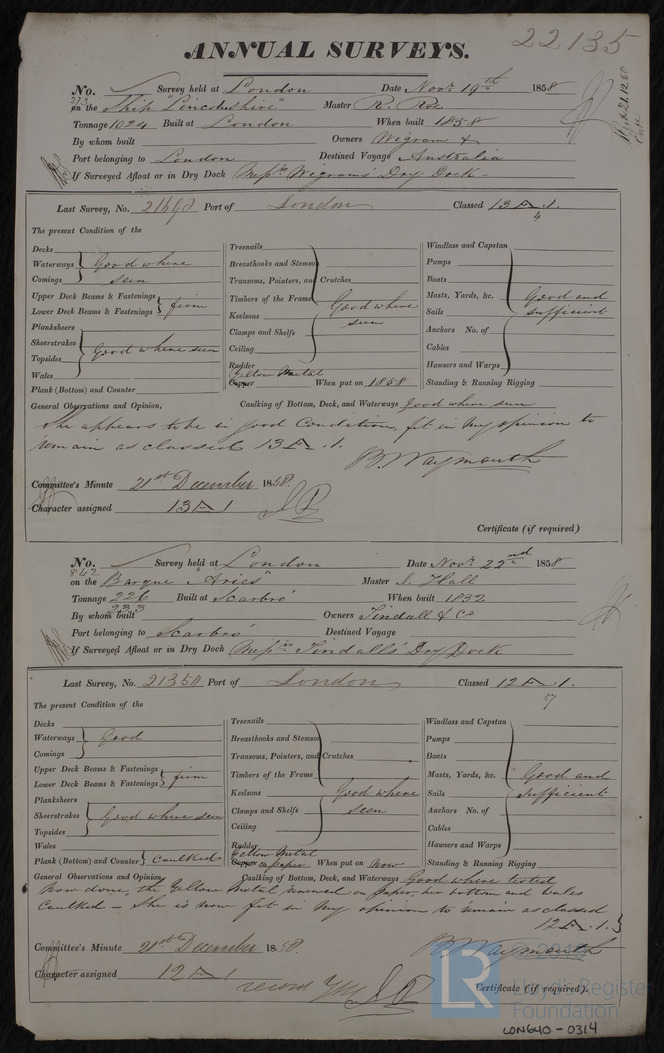 22135
ANNUAL SURVEYS.
No. Survey held at London Date Novr. 19th 1858
273
on the Ship "Lincolnshire" Master R. Roe
Tonnage 1024 Built at London When built 1858
By whom built Owners Wigram &
Port belonging to London Destined Voyage Australia
If Surveyed Afloat or in Dry Dock Messrs Wigrams' Dry Dock
Last Survey, No. Port of London Classed 13 A. 1.
4
The present Condition of the
Decks
Waterways Good where
Comings seen
Upper Deck Beams & Fastenings
Lower Deck Beams & Fastenings firm
Planksheers
Sheerstrakes
Topsides Good where seen
Wales
Plank (Bottom) and Counter
Treenails
Breasthooks and Stemson
Transoms, Pointers, and Crutches
Timbers of the Frame Good where
Keelsons seen
Clamps and Shelfs
Ceiling
Rudder
Yellow Metal
Copper When put on 1858
Windlass and Capstan
Pumps
Boats
Masts, Yards, &c. Good and
Sails sufficient
Anchors No. of
Cables
Hawsers and Warps
Standing & Running Rigging
General Observations and Opinion, Caulking of Bottom, Deck, and Waterways Good where seen
She appears to be in good Condition, fit in my opinion to
remain as classed 13 A. 1.
B. Waymouth
Committee's Minute 21st December 1858.
Character assigned 13 A 1
Certificate (if required)
No. Survey held at London Date Novr. 22nd 1858
842
on the Barque "Aries" Master J. Hall
Tonnage 226 Built at Scarbro' When built 1832
233
By whom built Owners Tindall & Co
Port belonging to Scarbro' Destined Voyage
If Surveyed Afloat or in Dry Dock Messrs Tindalls' Dry Dock
Last Survey, No. 21358 Port of London Classed 12 A. 1.
57
The present Condition of the
Decks
Waterways Good
Comings
Upper Deck Beams & Fastenings
Lower Deck Beams & Fastenings firm
Planksheers
Sheerstrakes Good where seen
Topsides
Wales
Plank (Bottom) and Counter Caulked
Treenails
Breasthooks and Stemson
Transoms, Pointers, and Crutches
Timbers of the Frame
Keelsons Good where
Clamps and Shelfs seen
Ceiling
Rudder
Yellow Metal
Copper on paper When put on Now
Windlass and Capstan
Pumps
Boats
Masts, Yards, &c. Good and
Sails sufficient
Anchors No. of
Cables
Hawsers and Warps
Standing & Running Rigging
General Observations and Opinion, Caulking of Bottom, Deck, and Waterways Good where tested
Now done, the Yellow Metal renewed on paper, her bottom and wales
Caulked - She is now fit in my opinion to remain as classed
12 A. 1.
B. Waymouth
Committee's Minute 21st December 1858.
Character assigned 12 A 1
Certificate (if required).
LR
Lloyd's Register
Foundation
LON640-0314